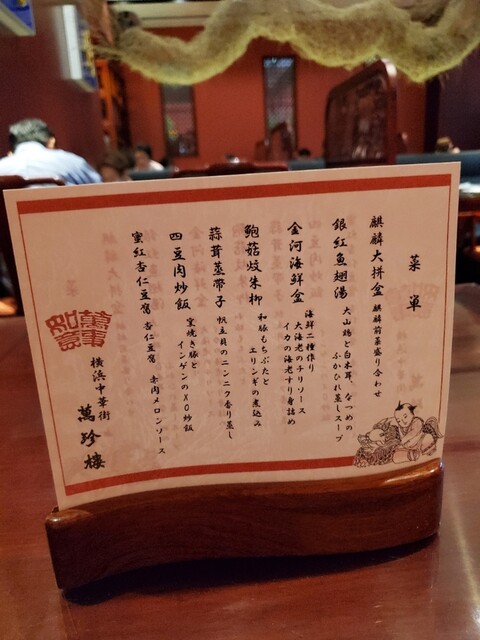 菜単
麒麟大拼盒 麒麟前菜盛り合わせ
銀紅魚翅湯 大山鶏と白木耳、なつめの
ふかひれ蒸しスープ
金河海鮮盒 海鮮二種作り
大海老のチリソース
イカの海老すり身詰め
鮑菇炆朱柳 和豚もちぶたと
エリンギの煮込み
蒜茸蒸帶子 帆立貝のニンニク香り蒸し
四豆肉炒飯 窯焼き豚と
インゲンのXO炒飯
蜜紅杏仁豆腐 杏仁豆腐 赤肉メロンソース
横浜中華街
萬珍樓
萬事如意